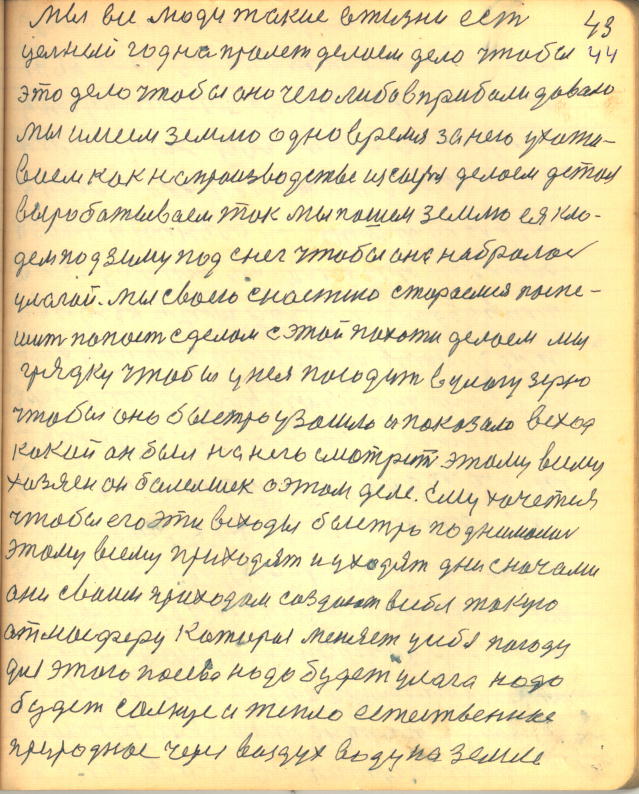 мы все люди такие в жизни ест 43
целный год напролет делаем дело чтобы 44
это дело чтобы оно чего либо в прибали давало
мы имеем землю одно время за него ухажа-
ваем как на производстве из сырья делаем детал
выробатываем так мы пашем землю ея кла-
дем под зиму под снег чтобы она набралас
улагой. мы своею снастию стараемся поспе-
шит попаст сделат с этой пахоти делаем мы
грядку чтобы у нея погодит в улагу зерно
чтобы оно быстро узошло и показало всход
какой он был на него смотрет этому всему
хозяен он болелшек о этом деле. ему хочется
чтобы его эти всходы быстро поднималис
этому всему приходят и уходят дни сночами
они своим приходом создают всебя такую
атмосферу которыя меняет усебя погоду
для этого посева надо будет улага надо
будет солнце и тепло естественное
природное через воздух воду на земле